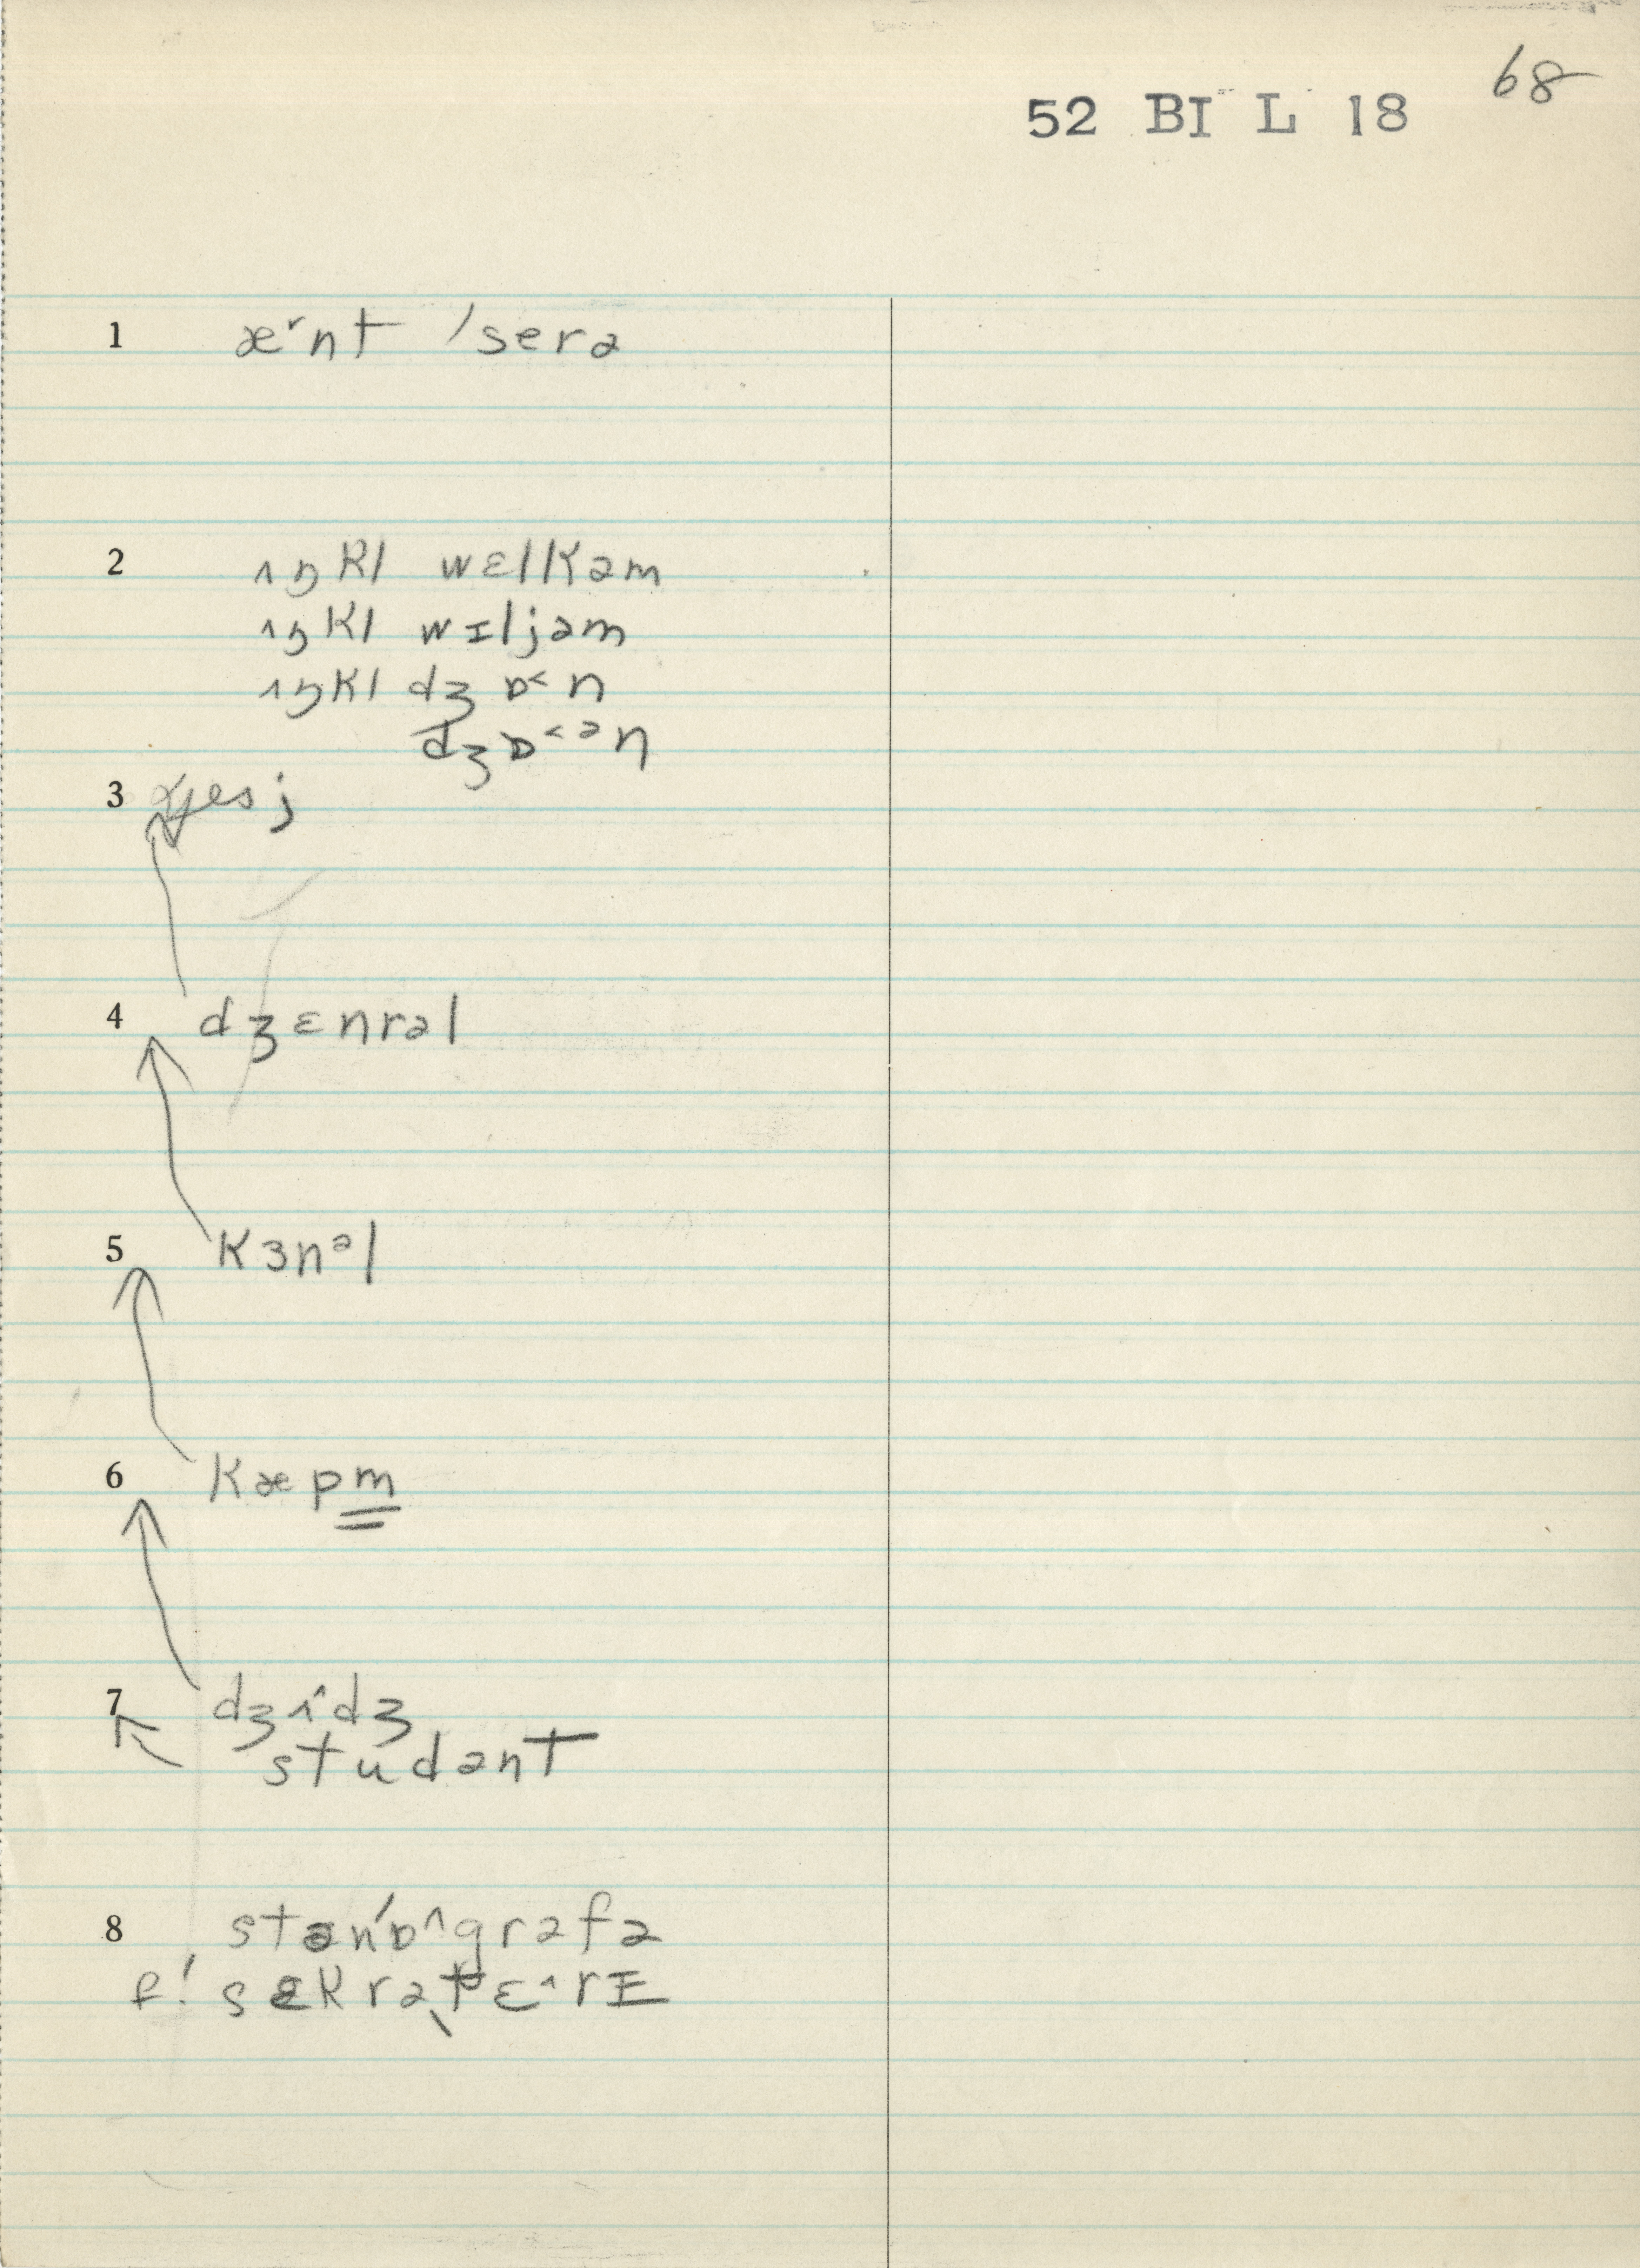 68
52 BI L 18
1 æ˞nt ˈserə
2 ʌŋkl wɛlkəm
ʌŋkl wɪljəm
ʌŋkl dʒɒ˂n
dʒɒ˂ᵊn
3
4 dʒɛnrəl
5 kɜnᵊl
6 kæpm̳
7 dʒʌ^dʒ
studənt
8 stənˈɒ^grəfə
f! sɛkrəˌtɛ^rɪ